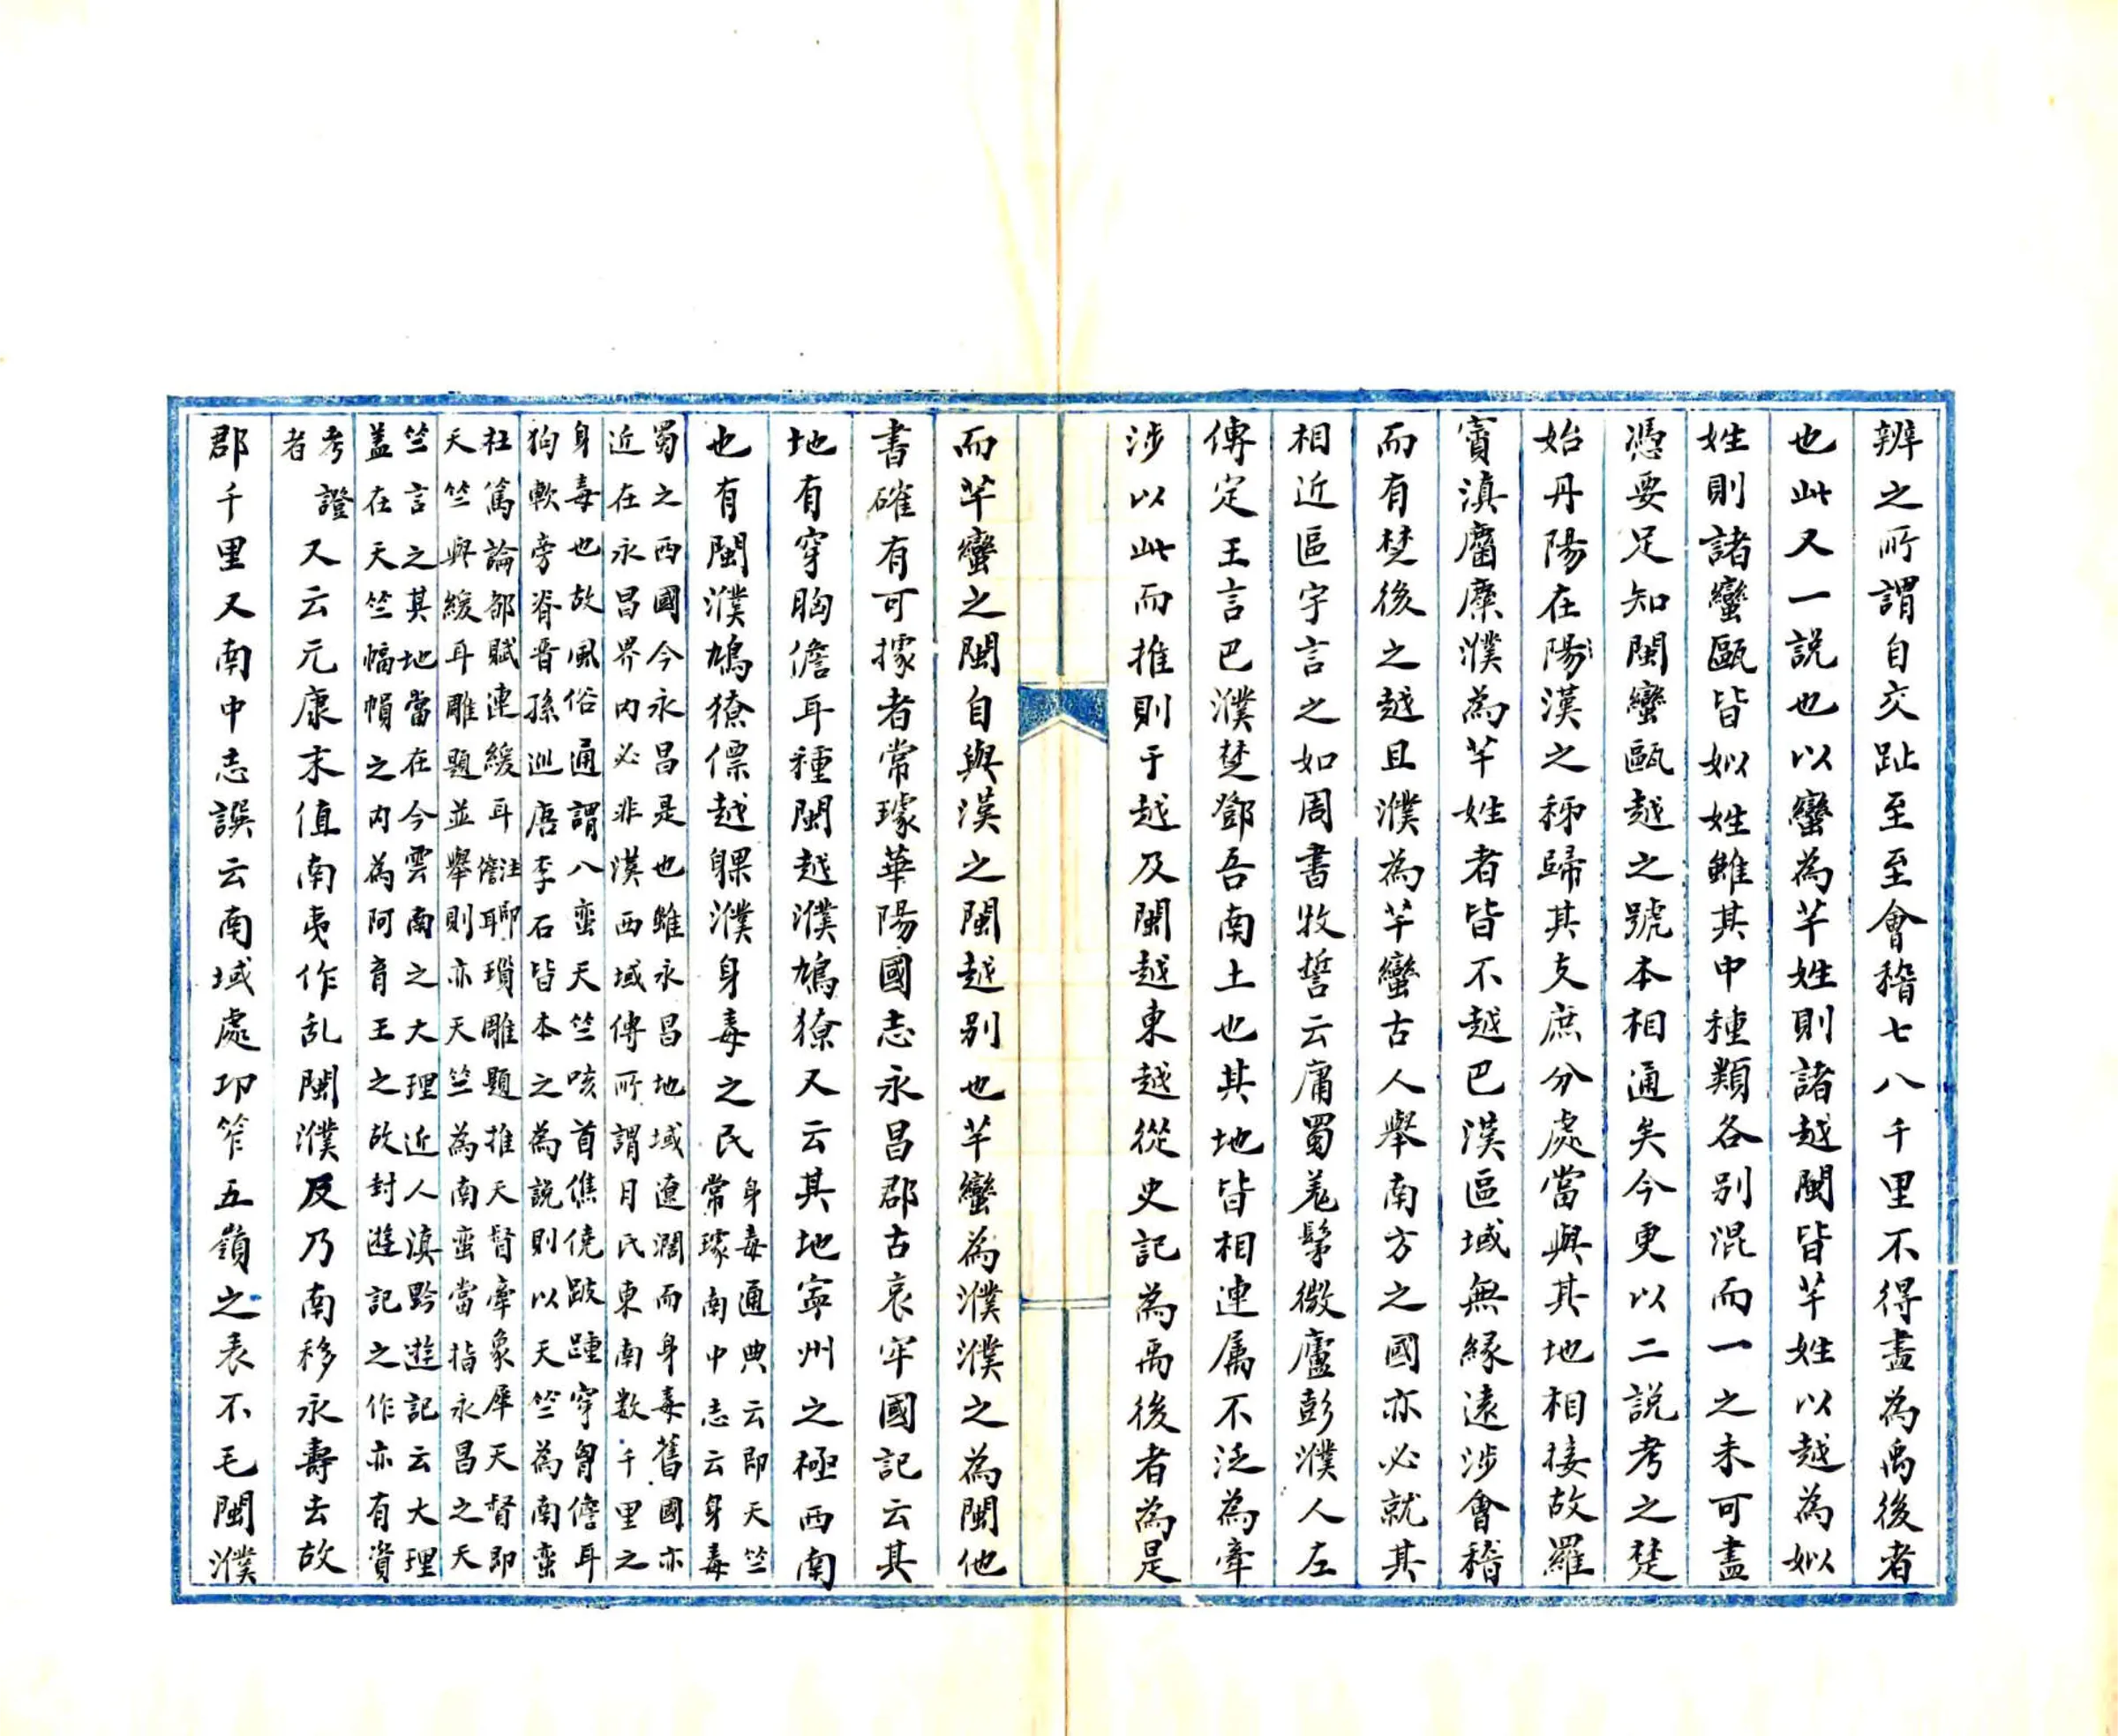 辨之所謂自交趾至至會稽七八千里不得盡為禹後者
也此又一説也以蠻為芊姓則諸越閩皆芊姓以越為姒
姓則諸蠻甌皆姒姓雖其中種類各别混而一之未可盡
憑要足知閩蠻甌越之號本相通矣今更以二説考之楚
始丹陽在陽漢之稀歸其支庶分處當與其地相接故羅
賨滇麕麇濮為芊姓者皆不越巴漢區域無緣遠涉會稽
而有楚後之越且濮為芊蠻古人舉南方之國亦必就其
相近區宇言之如周書牧誓云庸蜀羗髳微廬彭濮人左
傳定王言巴濮楚鄧吾南土也其地皆相連属不泛為牽
涉以此而推則于越及閩越東越從史記為禹後者為是
而芊蠻之閩自與漢之閩越别也芊蠻為濮濮之為閩他
書確有可據者常璩華陽國志永昌郡古哀牢國記云其
地有穿胸儋耳種閩越濮鳩獠又云其地寧州之極西南
也有閩濮鳩獠僄越躶濮身毒之民
身毒通典云即天竺
常璩南中志云身毒
蜀之西國今永昌是也雖永昌地域遼濶而身毒舊國亦
近在永昌界内必非漢西域傳所謂月氏東南数千里之
身毒也故風俗通謂八蛮天竺咳首僬僥跛踵穿胷儋耳
狗軟旁脊晋孫巡唐李石皆本之為説則以天竺為南蛮
杜篤論都賦連緩耳
注儋耳
瑣雕題推天督牽象犀天督即
天竺與緩耳雕題並舉則亦天竺為南蛮當指永昌之天
竺言之其地當在今雲南之大理近人滇黔遊記云大理
盖在天竺幅幀之内為阿育王之故封遊記之作亦有資
考證
者
又云元康末值南夷作乱閩濮反乃南移永壽去故
郡千里又南中志譔云南域處邛笮五嶺之表不毛閩濮